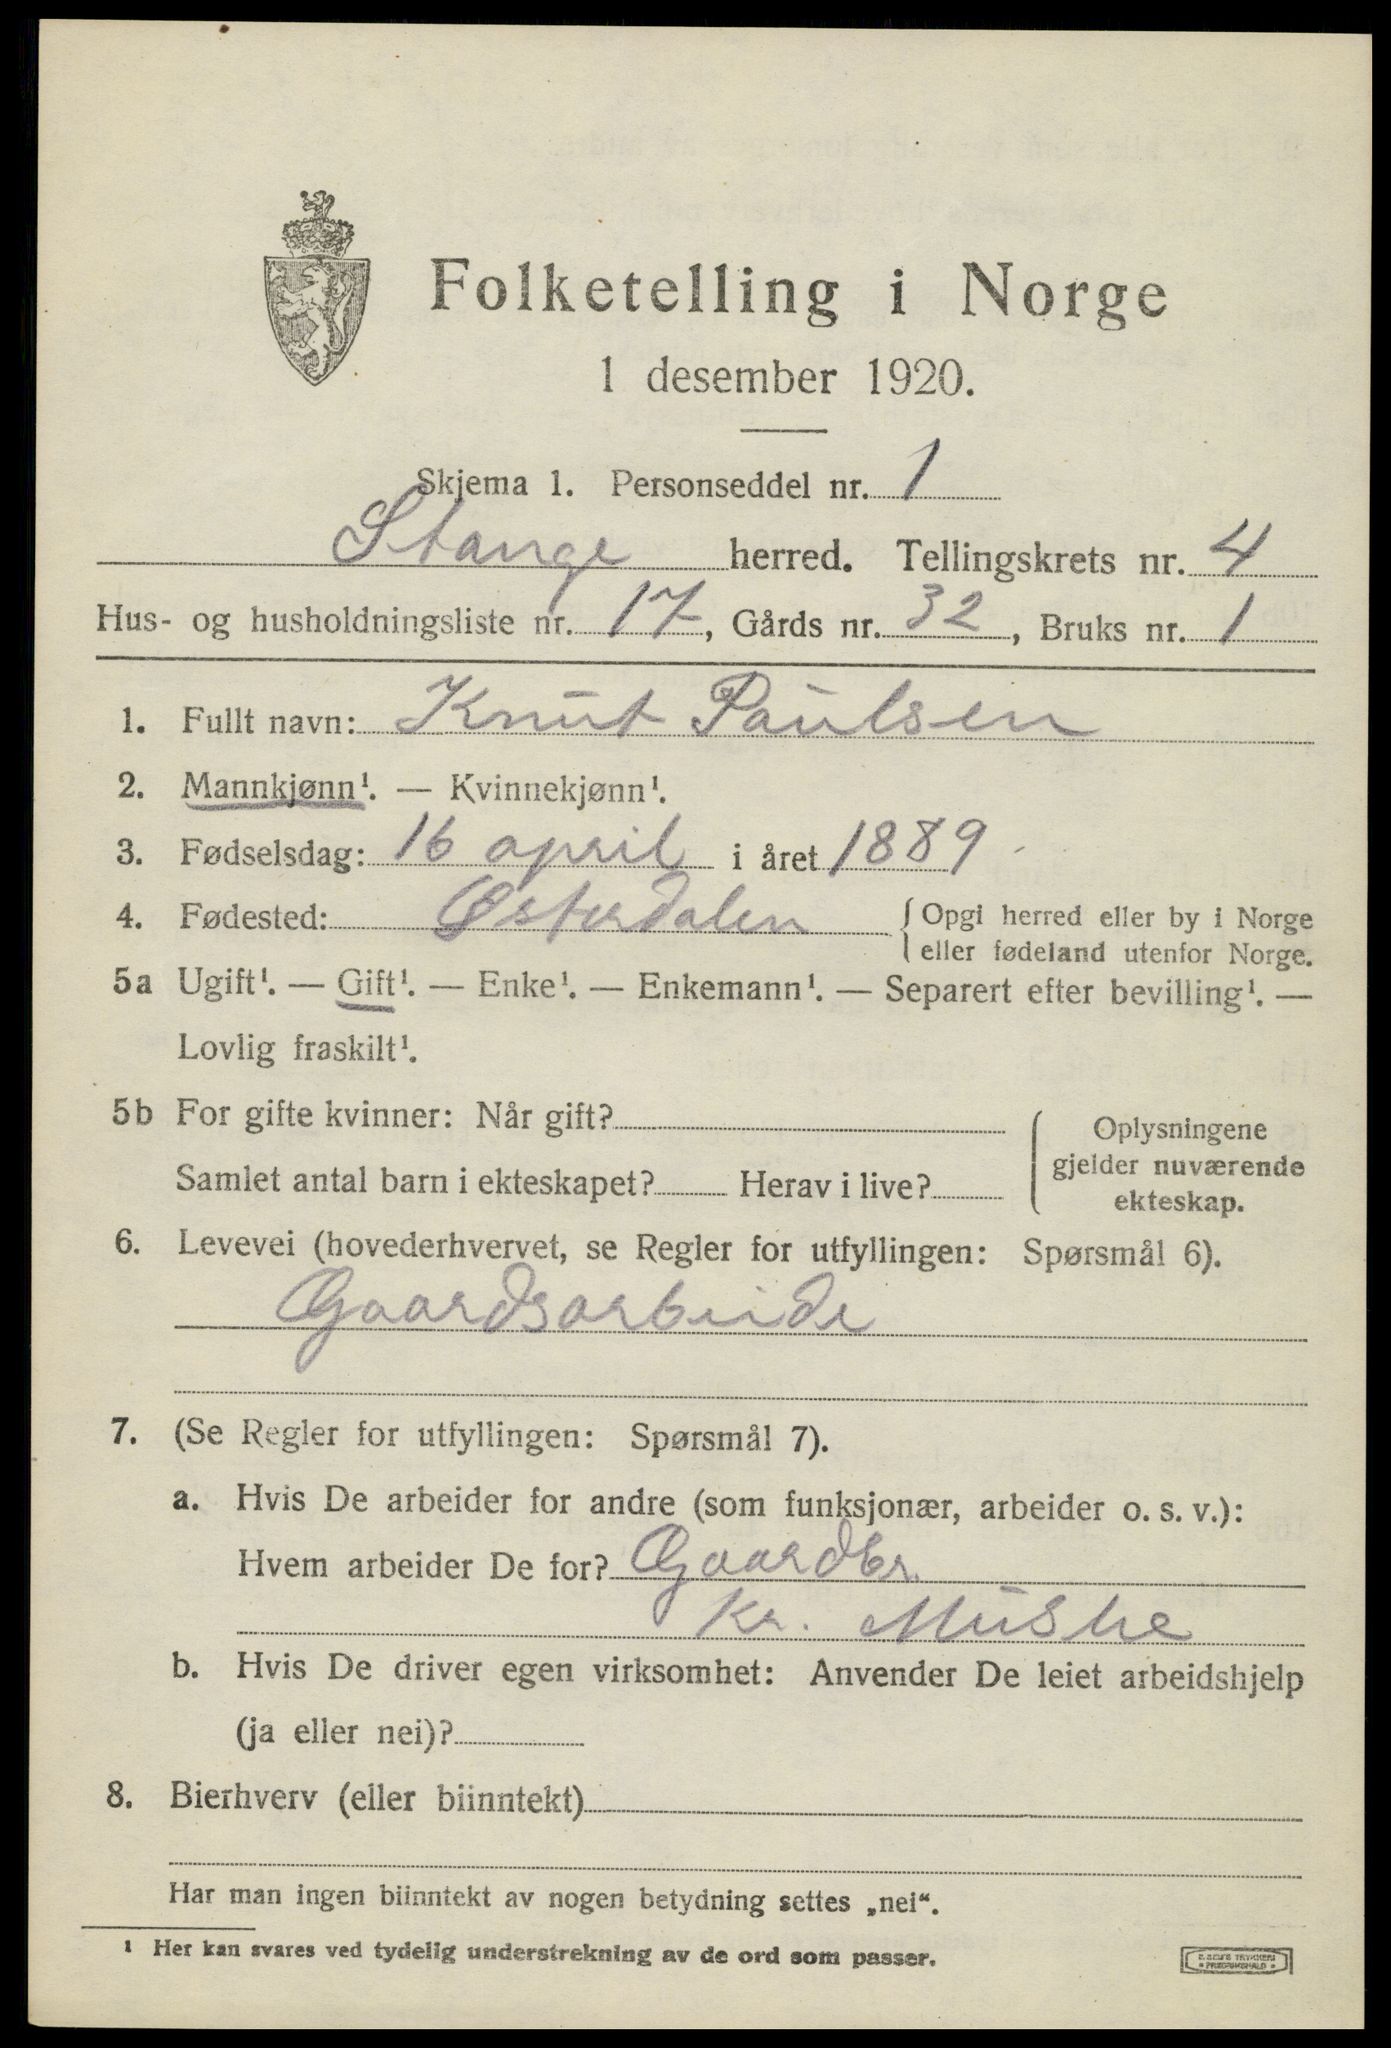 Folketelling i Norge
1 desember 1920.
Skjema 1. Personseddel nr. 1
Stange herred. Tellingskrets nr. 4
Hus- og husholdningsliste nr. 17, Gårds nr. 32, Bruks nr. 1
1. Fullt navn: Knut Paulsen
2. Mannkjønn¹. — Kvinnekjønn¹.
3. Fødselsdag: 16 april i året 1889
4. Fødested: Østerdalen { Opgi herred eller by i Norge
eller fødeland utenfor Norge.
5a Ugift¹. — Gift¹. — Enke¹. — Enkemann¹. — Separert efter bevilling¹. —
Lovlig fraskilt¹.
5b For gifte kvinner: Når gift?
Samlet antal barn i ekteskapet? Herav i live?
{ Oplysningene
gjelder nuværende
ekteskap.
6. Levevei (hovederhvervet, se Regler for utfyllingen: Spørsmål 6).
Gaardsarbeide
7. (Se Regler for utfyllingen: Spørsmål 7).
a. Hvis De arbeider for andre (som funksjonær, arbeider o. s. v.):
Hvem arbeider De for? Gaardbr.
Kr.
b. Hvis De driver egen virksomhet: Anvender De leiet arbeidshjelp
(ja eller nei)?
8. Bierhverv (eller biinntekt)
Har man ingen biinntekt av nogen betydning settes „nei“.
¹ Her kan svares ved tydelig understrekning av de ord som passer.